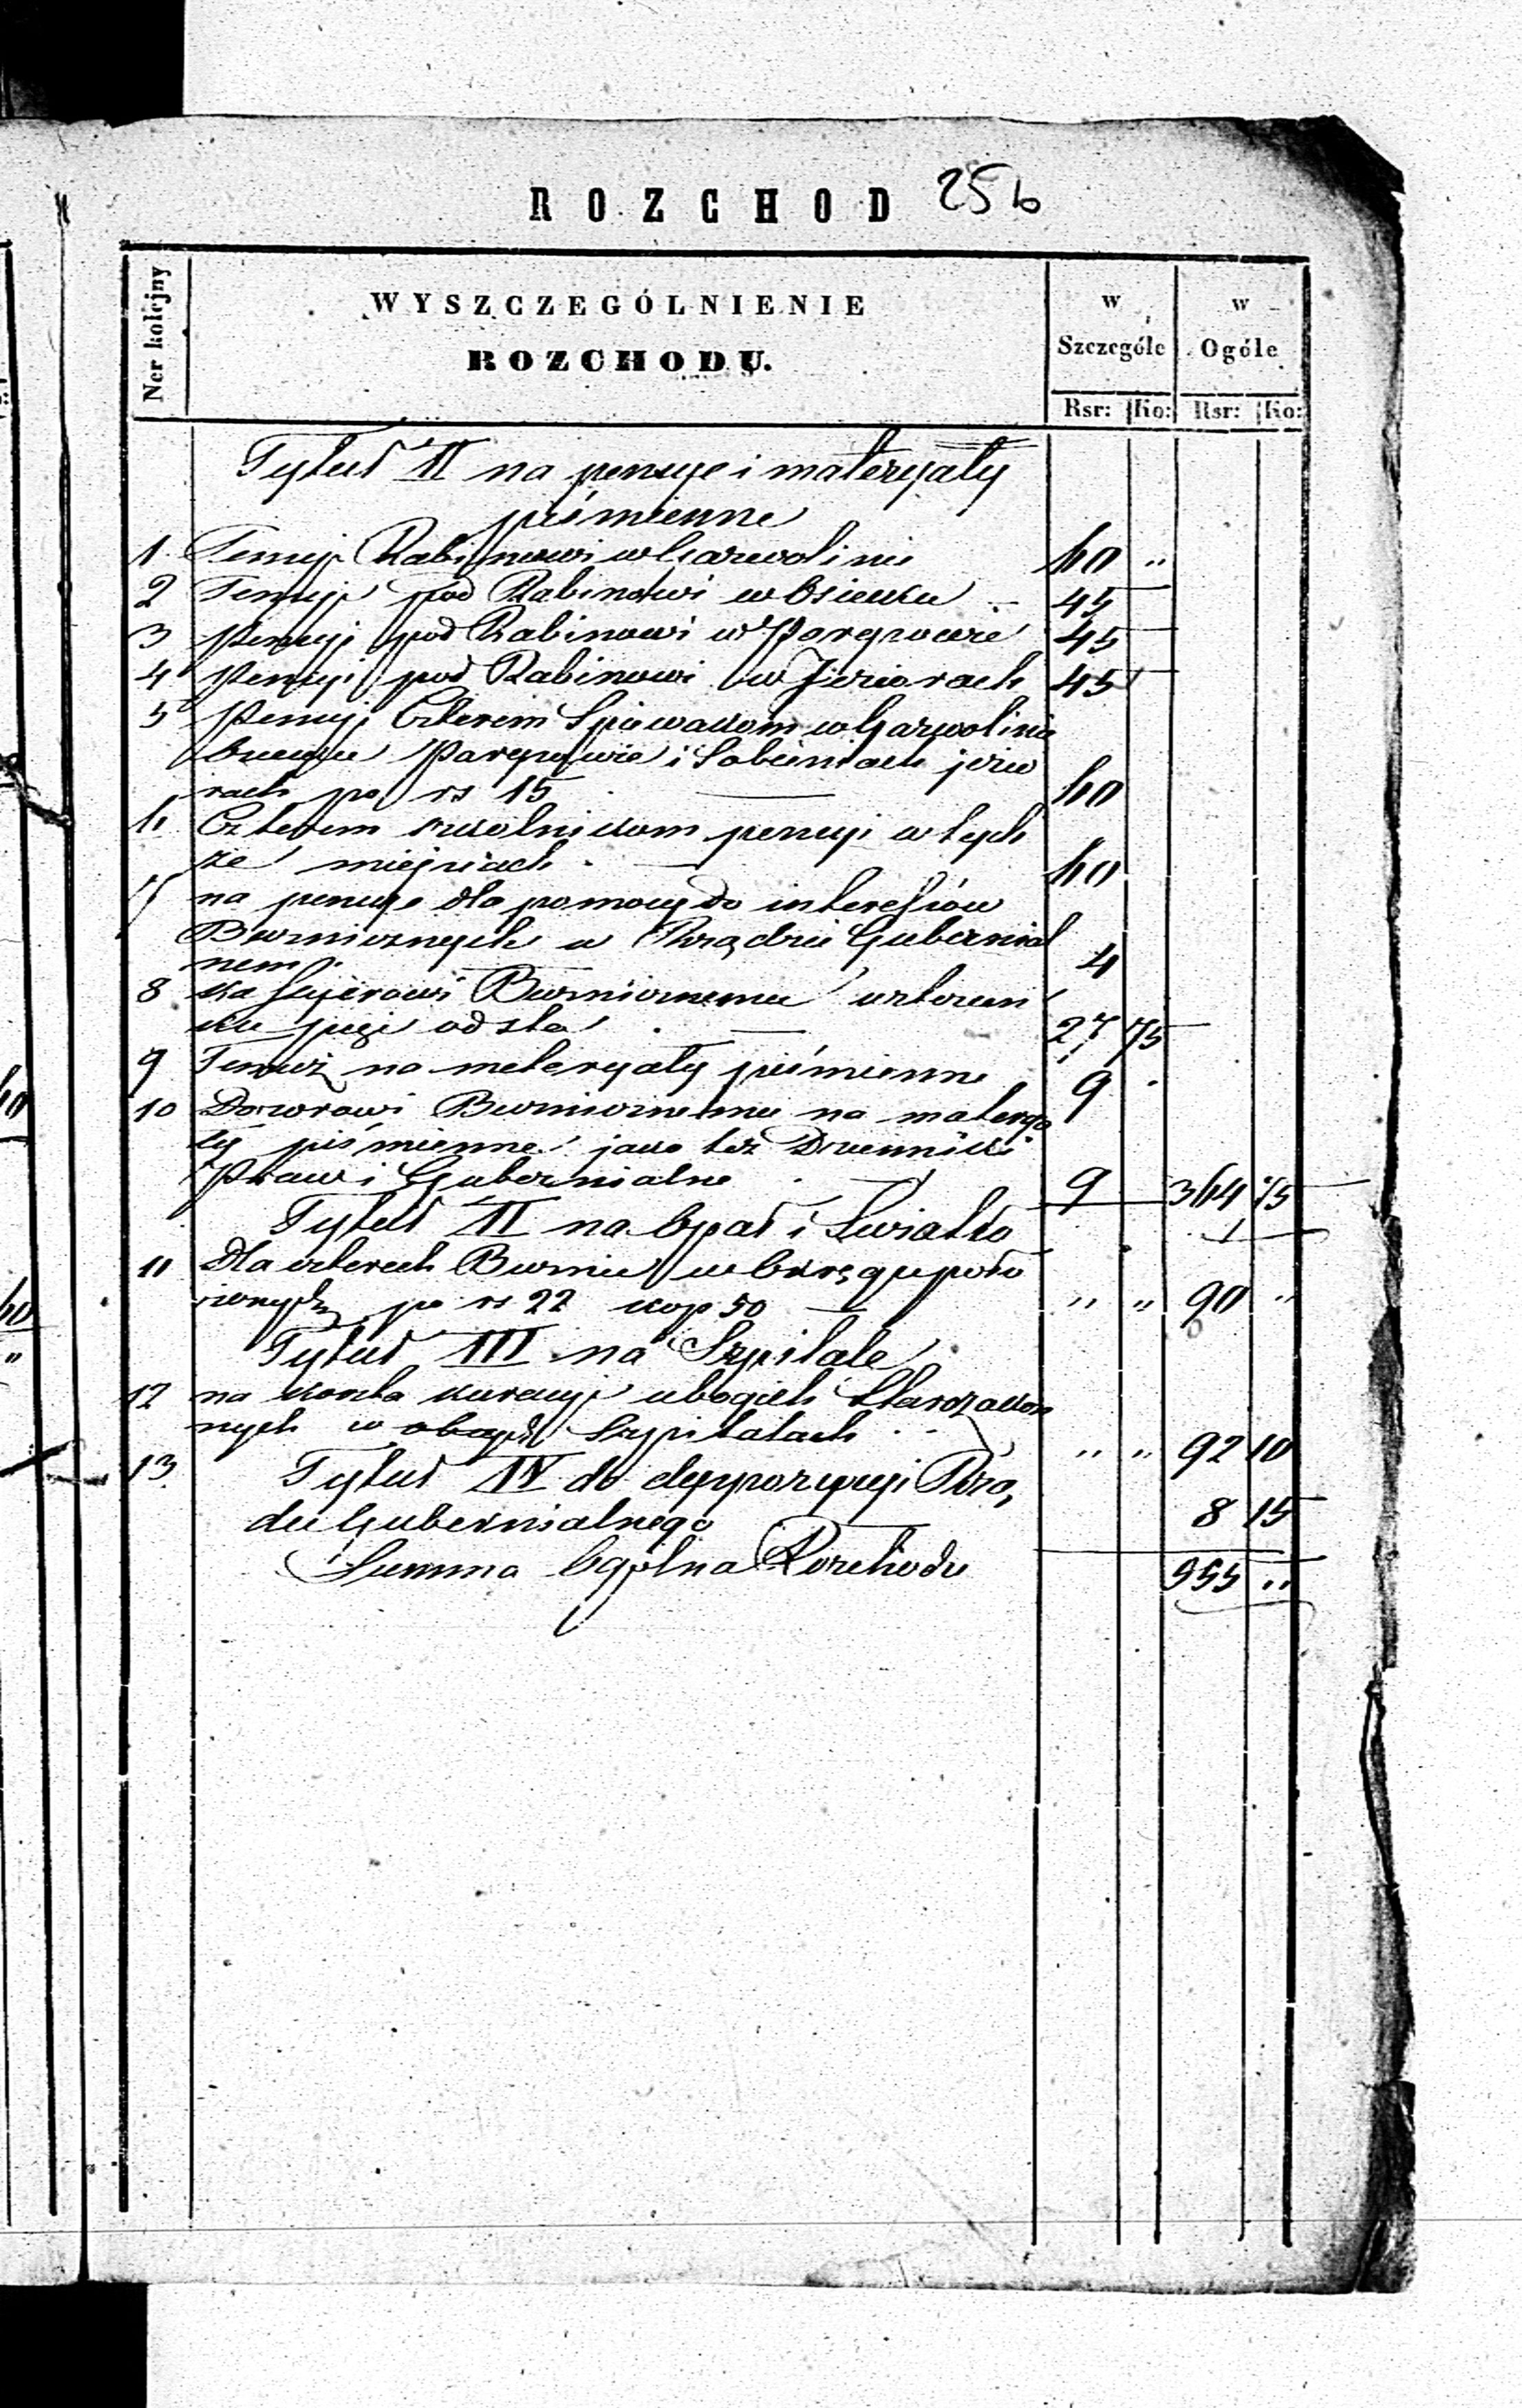 ROZCHOD 256
Ner kolejny
WYSZCZEGÓLNIENIE
ROZCHODU.
w Szczególe
w Ogóle
Rsr: Ko: Rsr: Ko:
Tytuł II na pensye i materyały
piśmienne
1 Pensyi Rabinowi w Garwolinie 60 "
2 Pensyi pod Rabinowi w Osiecku 45
3 Pensyi pod Rabinowi w Parysowie 45
4 Pensyi pod Rabinowi w Jeziorach 45
5 Pensyi Czterem Spiewakom w Garwolinie
Parysowie i Sobieniach jezio
rach po rs 15 60
6 Czterem szkolnikom pensyi w tych
że miejscach 60
7 na pensye dla pomocy do interessów
Bożnicznych w Rządzie Gubernial
nem 4
8 Kassyerowi Bożnicznemu
od sta 27 75
9 Temuż na materyały piśmienne 9
10 Dozorowi Bożnicznemu na materya
ły piśmienne jako też Dzienniki
Praw i Gubernialne 9 364 75
Tytuł II na Opał i Światło
11 Dla czterech Bożnic w Okręgu poło
żonych po rs 22 kop 50 " " 90 "
Tytuł III na Szpitale
12 na koszta kuracyi ubogich Starozakon
nych w obcych Szpitalach " " 92 10
13 Tytuł IV do dyspozycyi Rzą
du Gubernialnego 8 15
Summa Ogólna Rozchodu 555 "